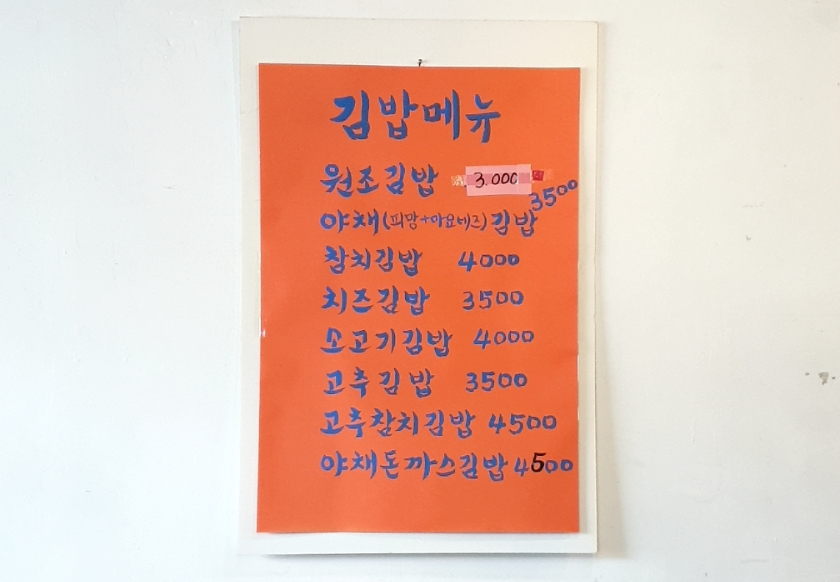 김밥메뉴
원조김밥 3.000
야채(피망+마요네즈)김밥 3500
참치김밥 4000
치즈김밥 3500
소고기김밥 4000
고추김밥 3500
고추참치김밥 4500
야채돈까스김밥 4500